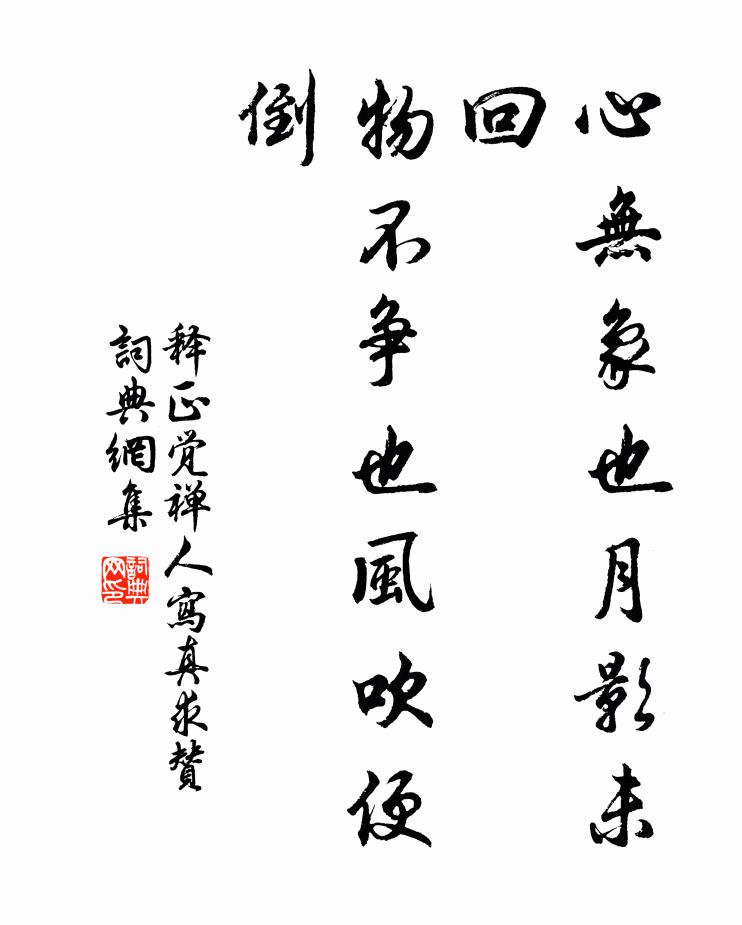 心無象也月影未
回
物不争也風吹便
倒
释正觉禅人寫真求贊
詞典網集
詞典
网印